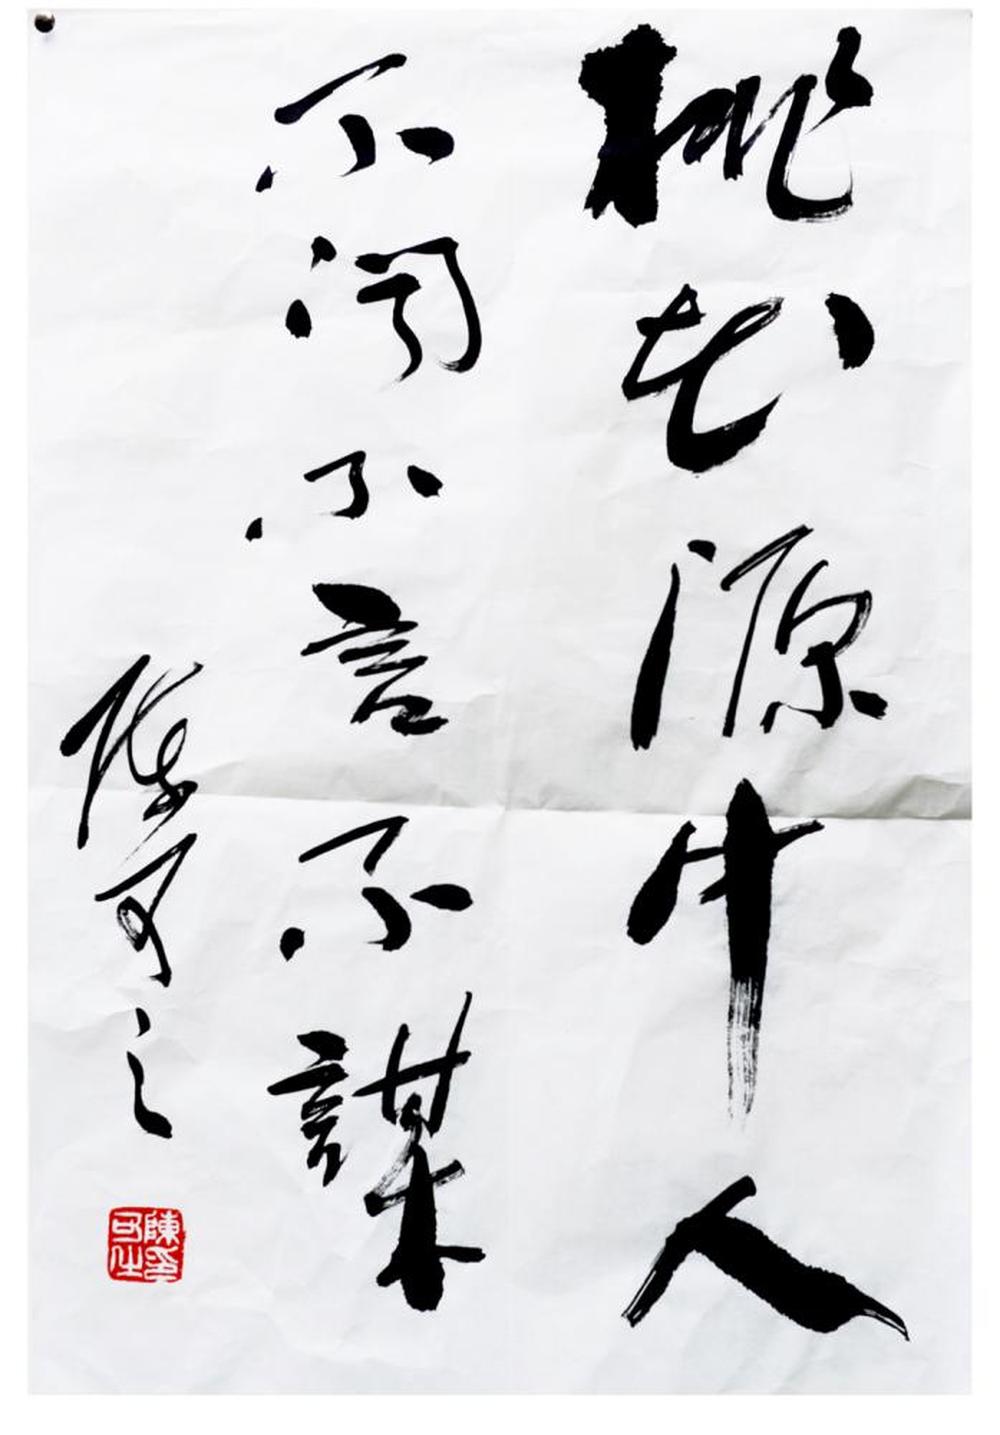 桃花源中人
不闻不言不謀
陈可之
陳印可之